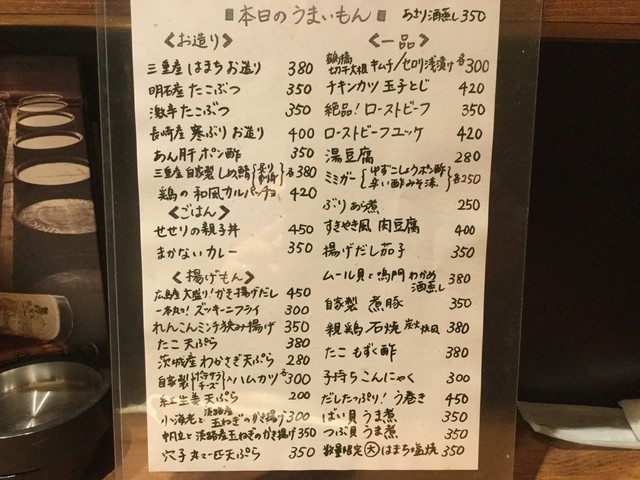 本日のうまいもん
あさり酒蒸し 350
<お造り>
三重産 はまち お造り 380
明石産 たこぶつ 350
激辛 たこぶつ 350
長崎産 寒ぶり お造り 400
あん肝 ポン酢 350
三重産 自家製 しめ鯖 各380
鶏の 和風カルパッチョ 420
<ごはん>
せせりの親子丼 450
まかない カレー 350
<揚げもん>
広島産 大盛り!かき揚げだし 450
一本丸ごと! ズッキーニフライ 300
れんこんミンチ挟み揚げ 350
たこ 天ぷら 380
茨城産 わかさぎ 天ぷら 280
自家製 ポテサラ チーズ ハムカツ 各300
紅生姜 天ぷら 200
小海老と 淡路産 玉ねぎの かき揚げ 300
淡路産 玉ねぎの かき揚げ 350
穴子 丸々一匹 天ぷら 350
<一品>
鶴橋 切干大根 キムチ/セロリ浅漬け 各300
チキンカツ 玉子とじ 420
絶品! ローストビーフ 350
ローストビーフユッケ 420
湯豆腐 280
ミミガー ゆずこしょうポン酢 辛い酢みそ 各250
ぶり あら煮 250
すきやき風 肉豆腐 400
揚げだし茄子 350
ムール貝と鳴門わかめ 酒蒸し 380
自家製 煮豚 350
親鶏 石焼 炭火焼風 380
たこ もずく酢 380
子持ち こんにゃく 300
だしたっぷり! う巻き 450
ばい貝 うま煮 350
つぶ貝 うま煮 350
数量限定 大 はまち塩焼 350